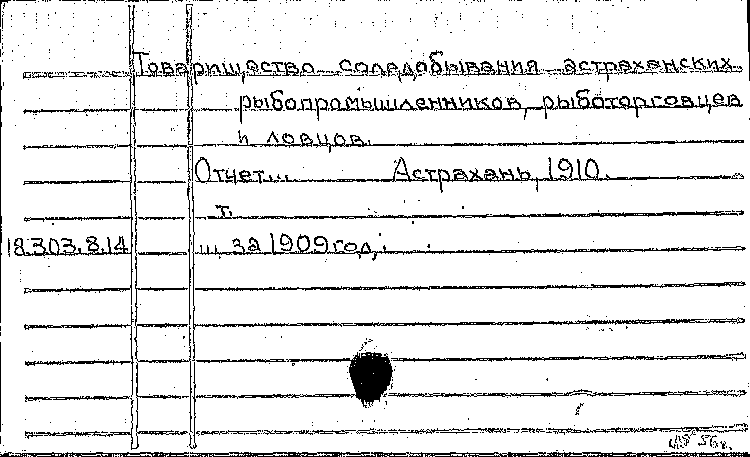 Товарищество соледобывания астраханских
рыбопромышленников, рыботорговцев
и ловцов.
Отчет... Астрахань, 1910.
т.
18.303.8.14 ... за 1909 год,